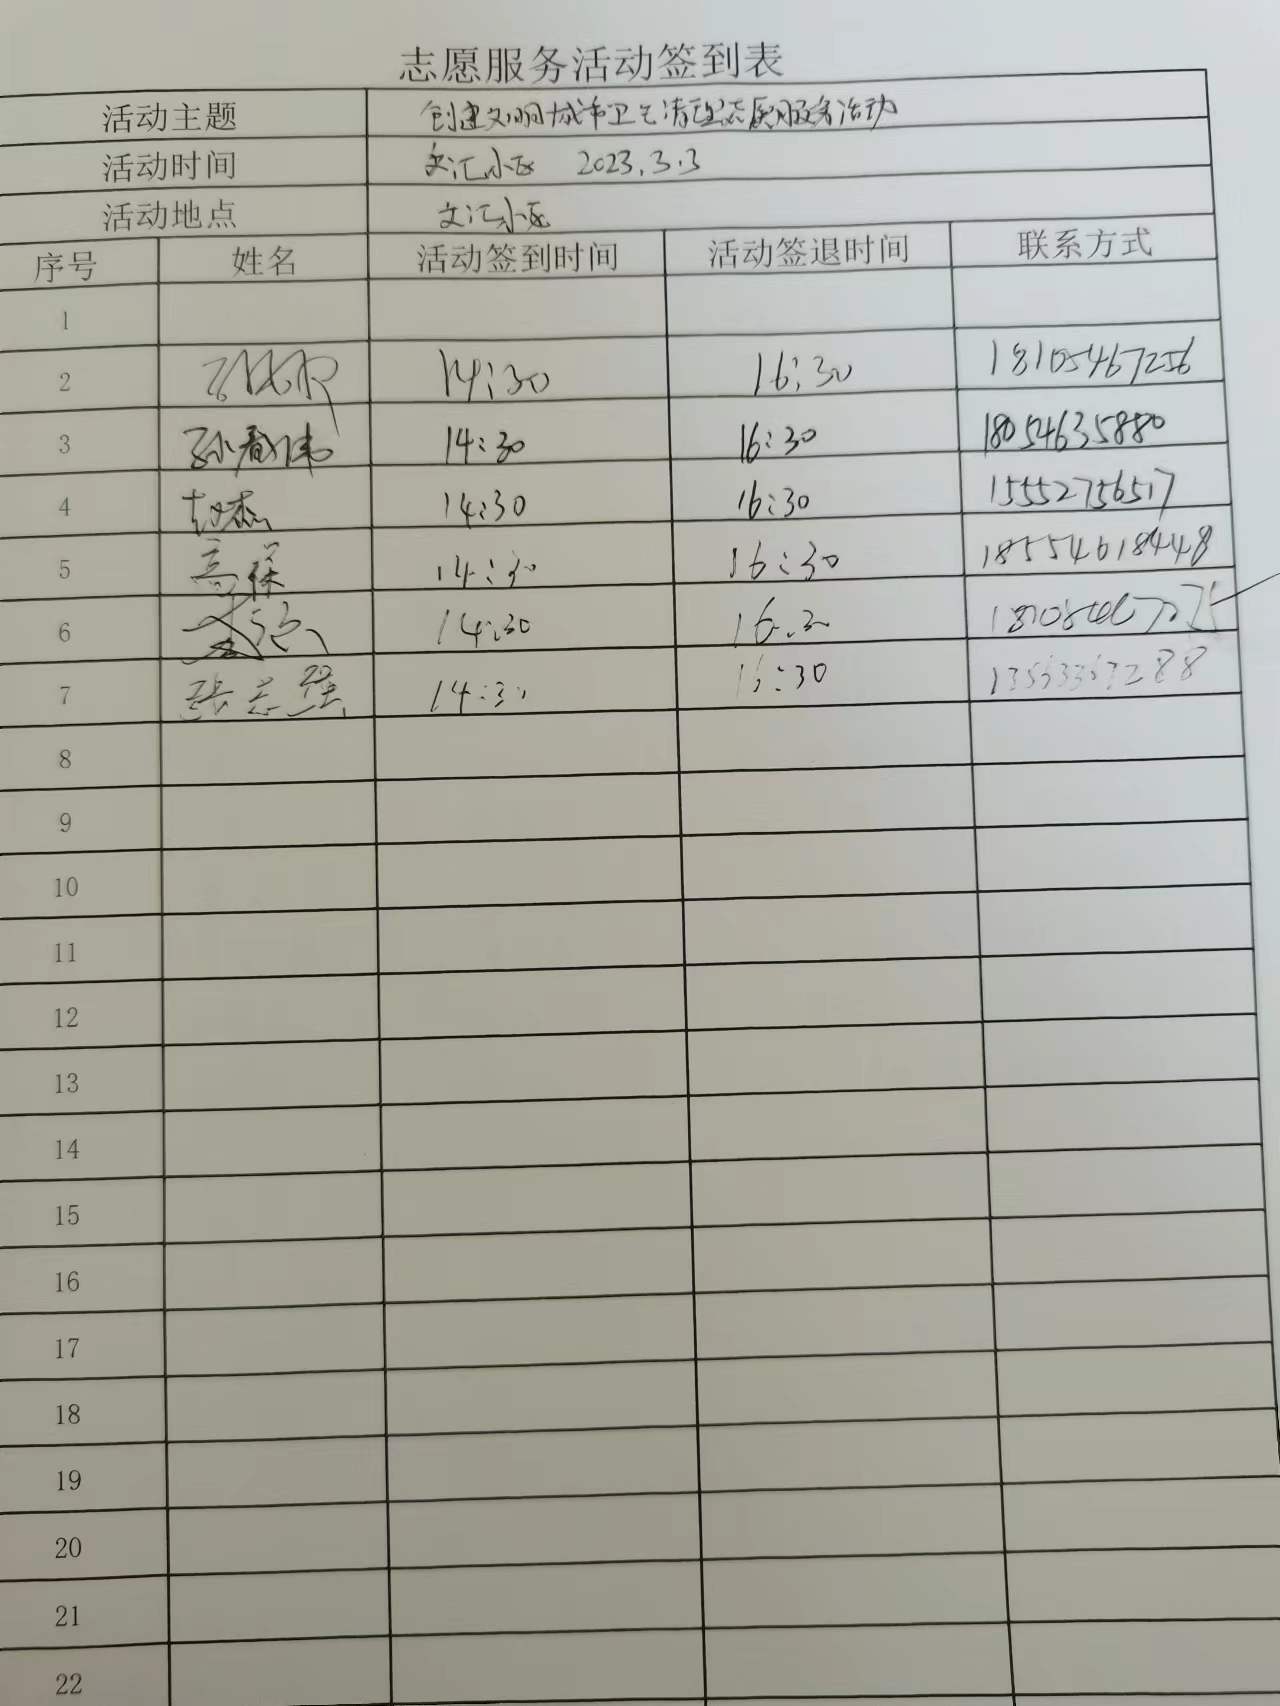 志愿服务活动签到表
活动主题 创建文明城市卫生清理志愿服务活动
活动时间 文汇小区 2023.3.3
活动地点 文汇小区
序号 姓名 活动签到时间 活动签退时间 联系方式
1
2 14:30 16:30 18105467256
3 14:30 16:30 18054635880
4 赵杰 14:30 16:30 15552756517
5 高保 14:30 16:30 18554618448
6 14:30 16:3
7 张志强 14:30 16:30
8
9
10
11
12
13
14
15
16
17
18
19
20
21
22